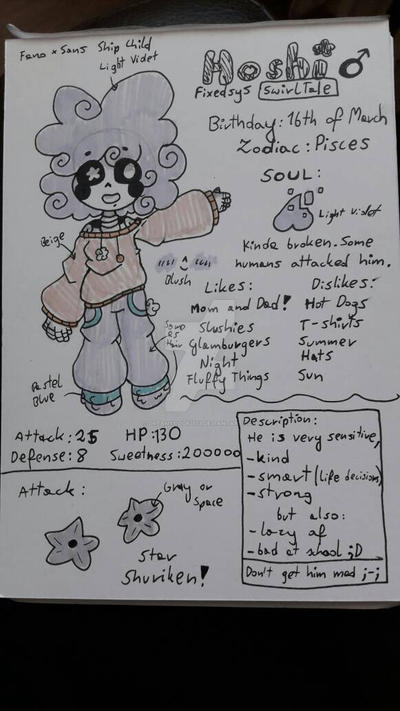 Fano x Sans Ship Child
Light Violet
Hoshi ♂
Fixedsys SwirlTale
Birthday: 16th of March
Zodiac: Pisces
SOUL:
Light Violet
Kinda broken. Some
humans attacked him.
Beige
Blush
Likes: Dislikes:
Mom and Dad! Hot Dogs
Slushies T-shirts
Glamburgers Summer
Night Hats
Fluffy Things Sun
Same
as
Hair
Pastel
Blue
Attack: 25 HP: 130
Defense: 8 Sweetness: 200000
Attack:
Gray or
Space
Star
Shuriken!
Description:
He is very sensitive,
-kind
-smart (life decision)
-strong
but also:
-lazy af
-bad at shool ;D
Don't get him mad ;-;